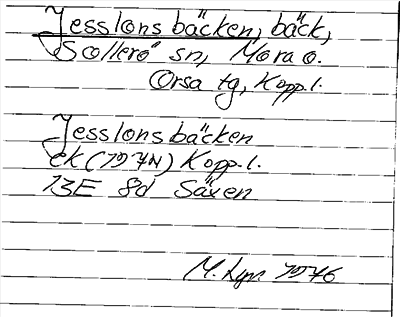 Jesslonsbäcken, bäck,
Sollerö sn, Mora o.
Orsa tg, Kopp.l.
Jesslonsbäcken
ek (1974) Kopp.l.
13E 8d Säxen
1976